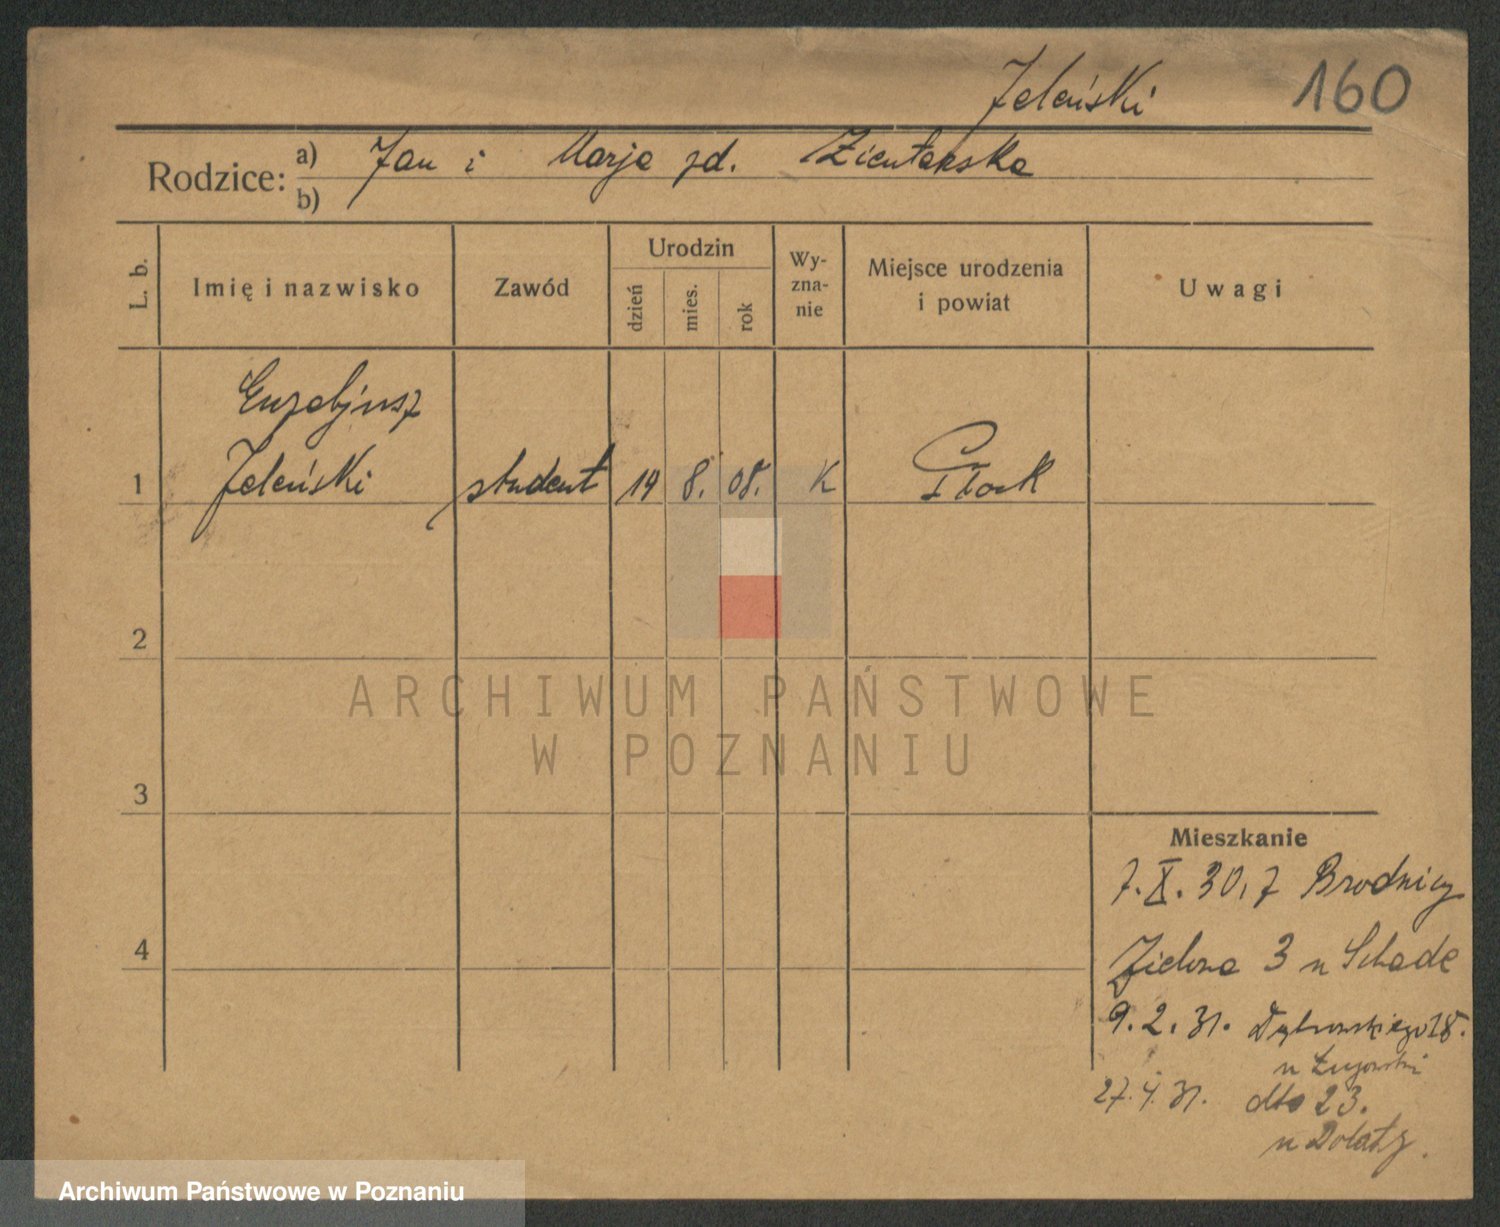 Jeleński 160
Rodzice: a) Jan i Marja zd. Zientarska
b)
L. b. Imię i nazwisko Zawód Urodzin dzień mies. rok Wy-zna-nie Miejsce urodzenia i powiat Uwagi
Euzebjusz
1 Jeleński student 19 8. 08. K Płock
2
ARCHIWUM PAŃSTWOWE
W POZNANIU
3
Mieszkanie
7.X.30, z Brodnicy
4 Zielona 3 u Schade
9.2.31. Dąbrowskiego 18.
u
27.4.31. dto 23.
u
Archiwum Państwowe w Poznaniu